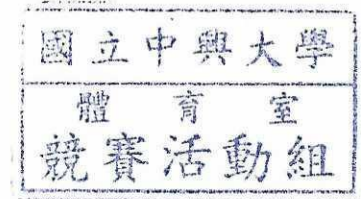 國立中興大學
體育室
競賽活動組